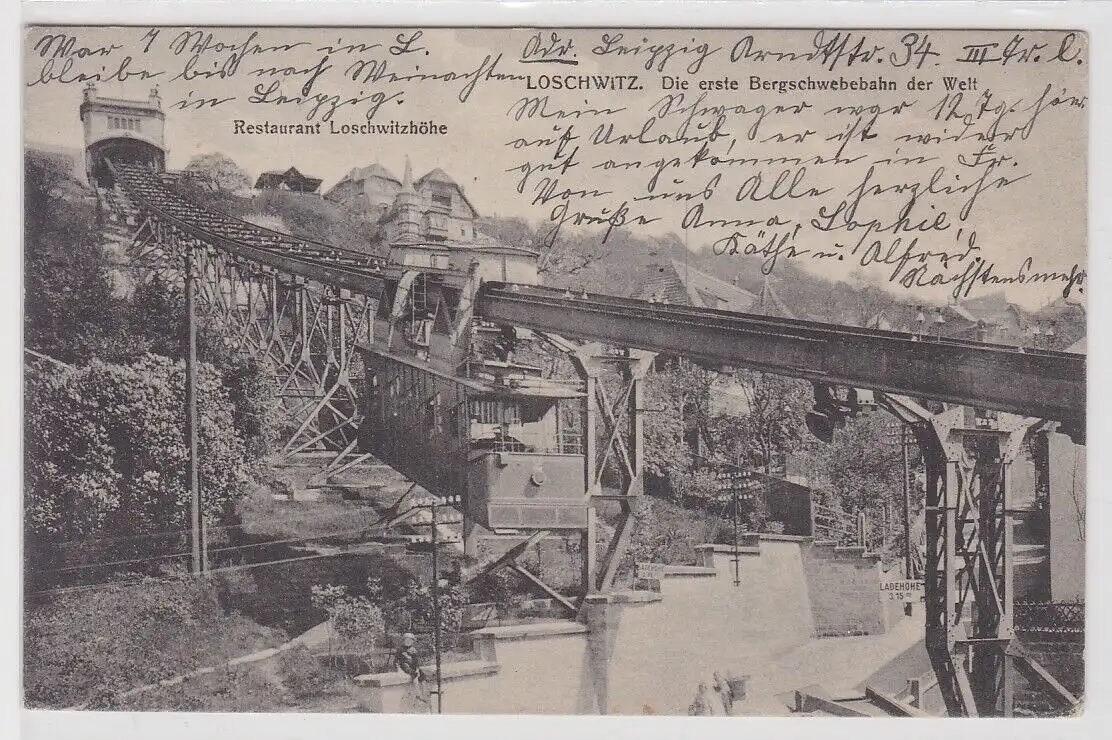 War 7 Wochen in L.
bleibe bis nach Weinachten
in Leipzig.
Restaurant Loschwitzhöhe
Adr. Leipzig Arndtstr. 34 III Tr. l.
LOSCHWITZ. Die erste Bergschwebebahn der Welt
Mein Schwager war 12 Tg. hier
auf Urlaub, er ist wider
gut angekommen in Fr.
Von uns Alle herzliche
Grüße Anna, Sophie,
Käthe u. Alfred.
Nächstensmehr.
LADEHÖHE
3.15 m